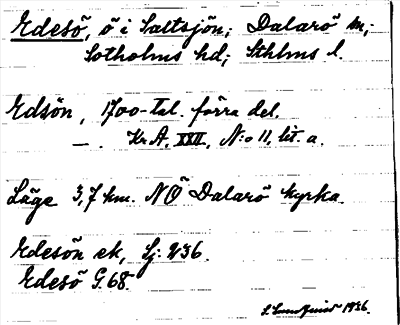 Edesö, ö i Saltsjön; Dalarö sn;
Sotholms hd; Sthlms l.
Edsön, 1700-tal. förra del.
—. Kr A, XXII, N:o 11, lit. a.
Läge 3,7 km. NÖ Dalarö kyrka.
Edesön ek, Sj. 236.
Edesö G. 68.
1936.